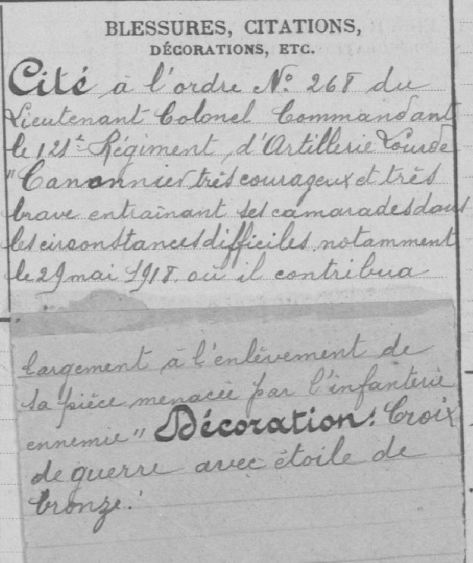 BLESSURES, CITATIONS,
DÉCORATIONS, ETC.
Cité à l'ordre N° 268 du
Lieutenant Colonel Commandant
le 121e Régiment d'Artillerie Lourde
"Canonnier très courageux et très
brave entraînant ses camarades dans
les circonstances difficiles, notamment
le 29 mai 1918. où il contribua
largement à l'enlèvement de
sa pièce menacée par l'infanterie
ennemie" Décoration: Croix
de guerre avec étoile de
bronze.